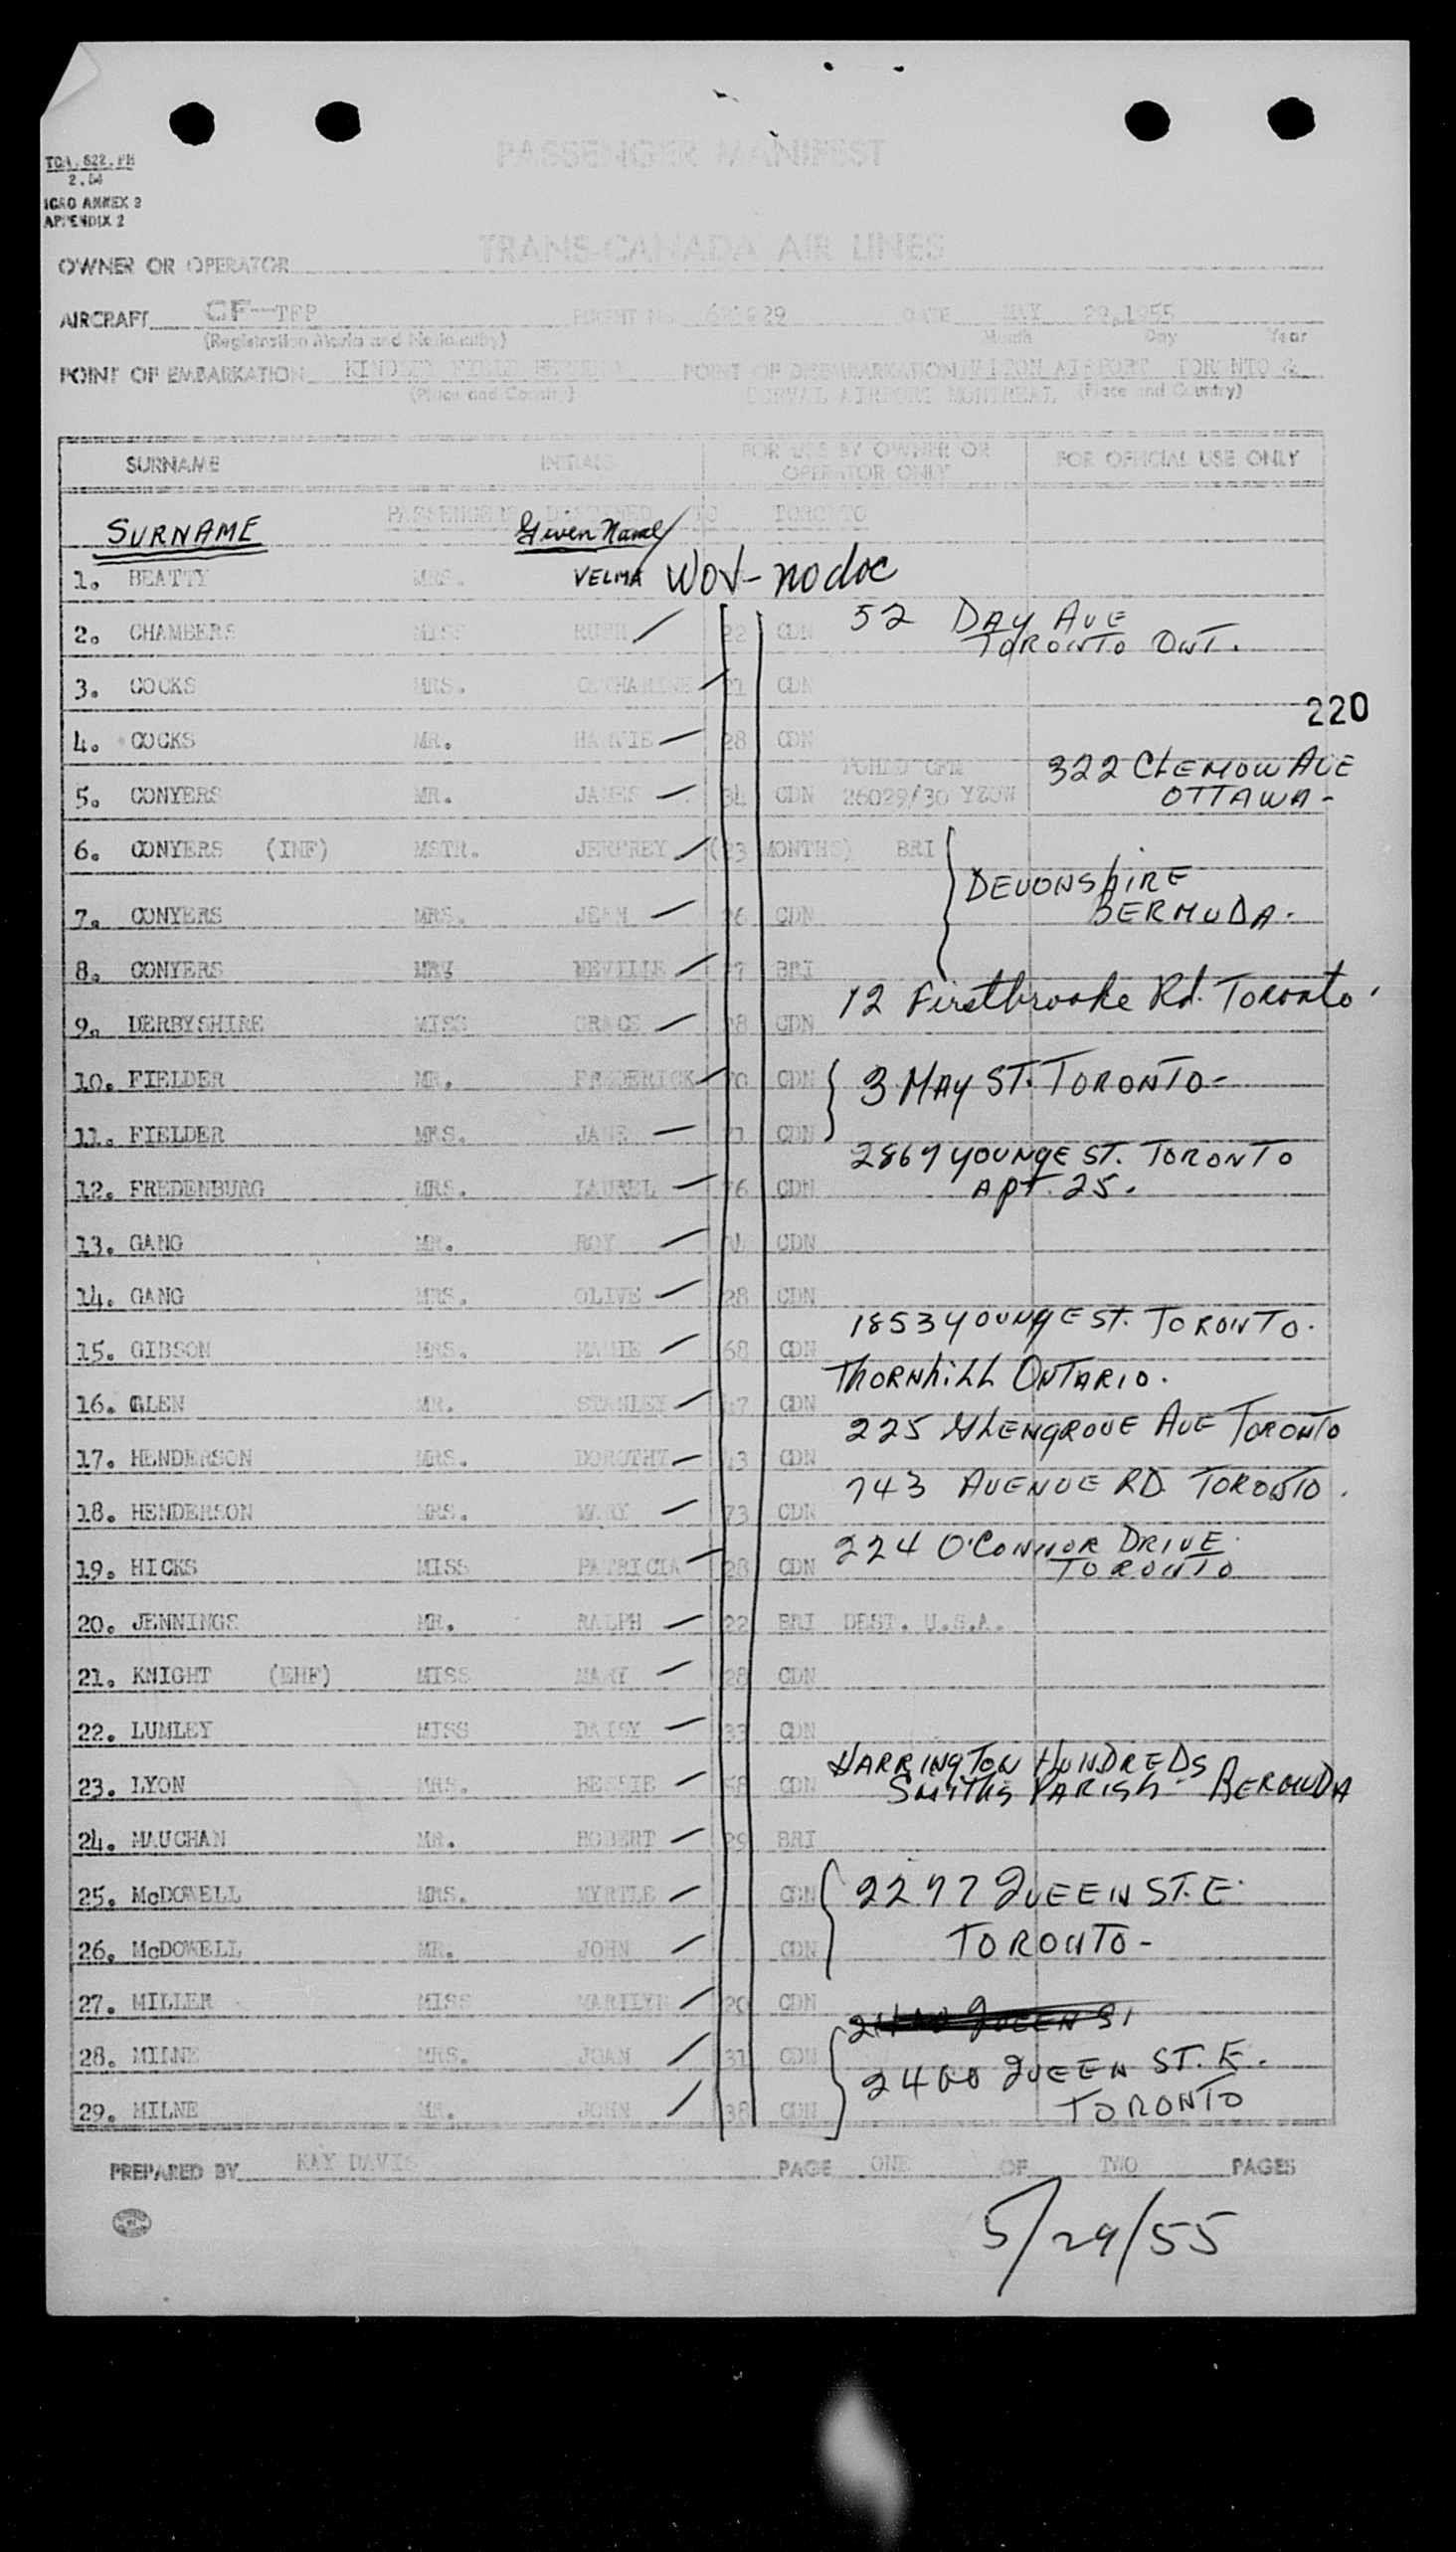 PASSENGER MANIFEST
TCA. 622. PH
2.54
ICAO ANNEX 9
APPENDIX 2
TRANS-CANADA AIR LINES
OWNER OR OPERATOR
AIRCRAFT CF-TFP FLIGHT NO. DATE MAY 29, 1955
(Registration Marks and Nationality) Month Day Year
POINT OF EMBARKATION KINDLEY FIELD BERMUDA POINT OF DISEMBARKATION MALTON AIRPORT TORONTO &
(Place and Country) DORVAL AIRPORT MONTREAL (Place and Country)
SURNAME INITIALS FOR USE BY OWNER OR OPERATOR ONLY FOR OFFICIAL USE ONLY
PASSENGERS DESTINED TO TORONTO
SURNAME Given Name
1. BEATTY MRS. VELMA WOV- no doc
2. CHAMBERS MISS RUTH 22 CDN 52 DAY AVE
TORONTO ONT.
3. COCKS MRS. CATHARINE CDN
220
4. COCKS MR. 28 CDN
5. CONYERS MR. JAMES 34 CDN 26029/30 YZOW 322 CLEMOW AVE
OTTAWA-
6. CONYERS (INF) MSTR. JEFFREY (23 MONTHS) BRI
DEVONSHIRE
BERMUDA.
7. CONYERS MRS. JEAN 26 CDN
8. CONYERS MR. NEVILLE 27 BRI
12 Firstbrooke Rd. TORONTO.
9. DERBYSHIRE MISS GRACE CDN
10. FIELDER MR. FREDERICK 70 CDN 3 MAY ST. TORONTO-
11. FIELDER MRS. JANE 71 CDN
2867 YOUNGE ST. TORONTO
12. FREDENBURG MRS. LAUREL CDN APT. 25.
13. GANG MR. ROY CDN
14. GANG MRS. OLIVE 28 CDN
1853 YOUNGE ST. TORONTO.
15. GIBSON MRS. MAMIE 68 CDN
THORNHILL ONTARIO.
16. GLEN MR. STANLEY 47 CDN
225 GLENGROVE AVE TORONTO
17. HENDERSON MRS. DOROTHY 43 CDN
743 AVENUE RD. TORONTO.
18. HENDERSON MRS. MARY 73 CDN
224 O'CONNOR DRIVE.
19. HICKS MISS PATRICIA 28 CDN TORONTO
20. JENNINGS MR. RALPH 22 BRI DEST. U.S.A.
21. KNIGHT (EHF) MISS MARY 28 CDN
22. LUMLEY MISS DAISY 33 CDN
HARRINGTON HUNDREDS
23. LYON MRS. BESSIE 58 CDN SMITHS PARISH- BERMUDA
24. MAUCHAN MR. ROBERT 29 BRI
25. McDOWELL MRS. MYRTLE CDN 2277 QUEEN ST. E.
26. McDOWELL MR. JOHN CDN TORONTO-
27. MILLER MISS MARILYN 20 CDN
2400 QUEEN ST
28. MILNE MRS. JOAN 31 CDN 2400 QUEEN ST. E.
29. MILNE MR. JOHN 38 CDN TORONTO
PREPARED BY KAY DAVIS PAGE ONE OF TWO PAGES
5/29/55